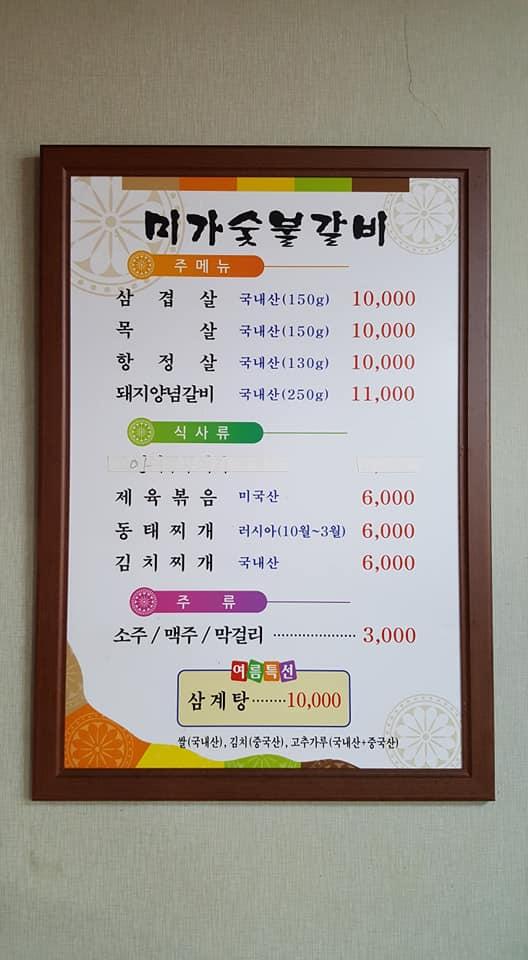 미가숯불갈비
주메뉴
삼겹살 국내산(150g) 10,000
목살 국내산(150g) 10,000
항정살 국내산(130g) 10,000
돼지양념갈비 국내산(250g) 11,000
식사류
제육볶음 미국산 6,000
동태찌개 러시아(10월~3월) 6,000
김치찌개 국내산 6,000
주류
소주/맥주/막걸리 ···················· 3,000
여름특선
삼계탕 ········ 10,000
쌀(국내산), 김치(중국산), 고추가루(국내산+중국산)